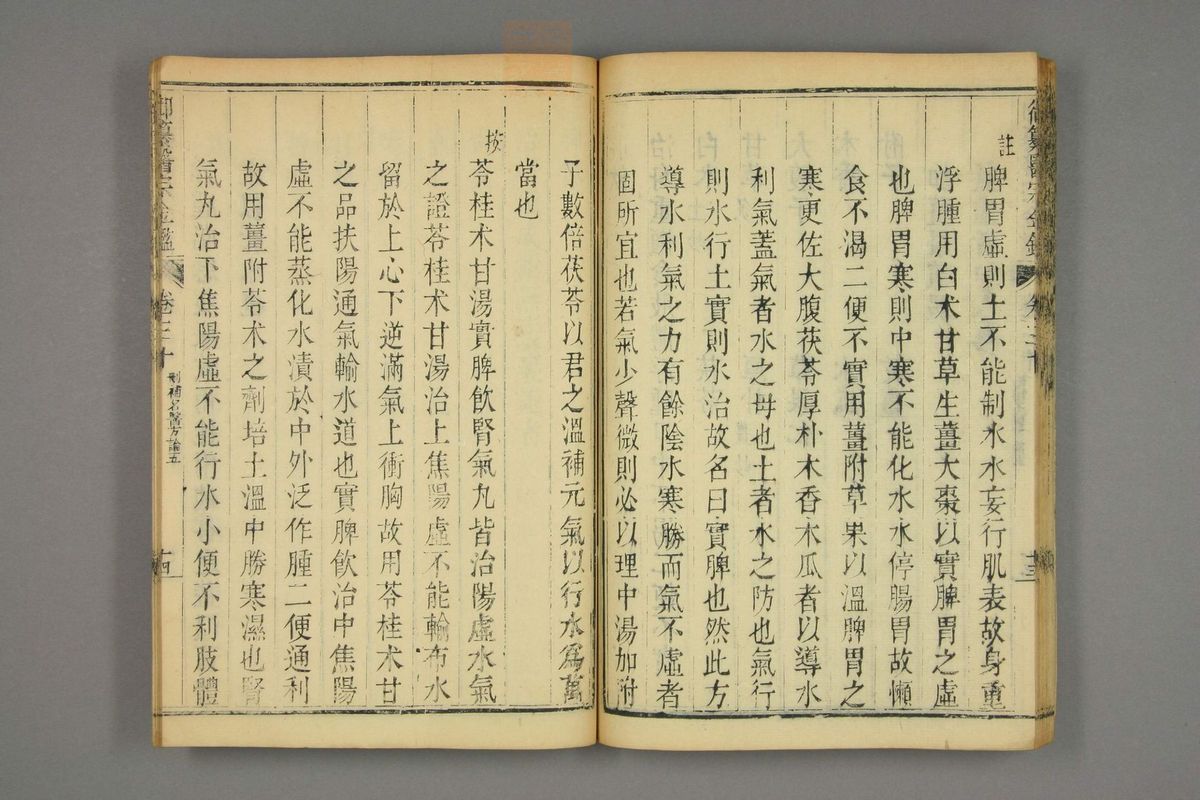 註
脾胃虛則土不能制水水妄行肌表故身重
浮腫用白术甘草生薑大棗以實脾胃之虛
也脾胃寒則中寒不能化水水停腸胃故懶
食不渴二便不實用薑附草果以溫脾胃之
寒更佐大腹茯苓厚朴木香木瓜者以導水
利氣蓋氣者水之母也土者水之防也氣行
則水行土實則水治故名曰實脾也然此方
導水利氣之力有餘陰水寒勝而氣不虛者
固所宜也若氣少聲微則必以理中湯加附
子數倍茯苓以君之溫補元氣以行水爲萬
當也
按
苓桂术甘湯實脾飲腎氣丸皆治陽虛水氣
之證苓桂术甘湯治上焦陽虛不能輸布水
留於上心下逆滿氣上衝胸故用苓桂术甘
之品扶陽通氣輸水道也實脾飲治中焦陽
虛不能蒸化水漬於中外泛作腫二便通利
故用薑附苓术之劑培土溫中勝寒濕也腎
氣丸治下焦陽虛不能行水小便不利肢體
卷三十
刪補名醫方論五
十四